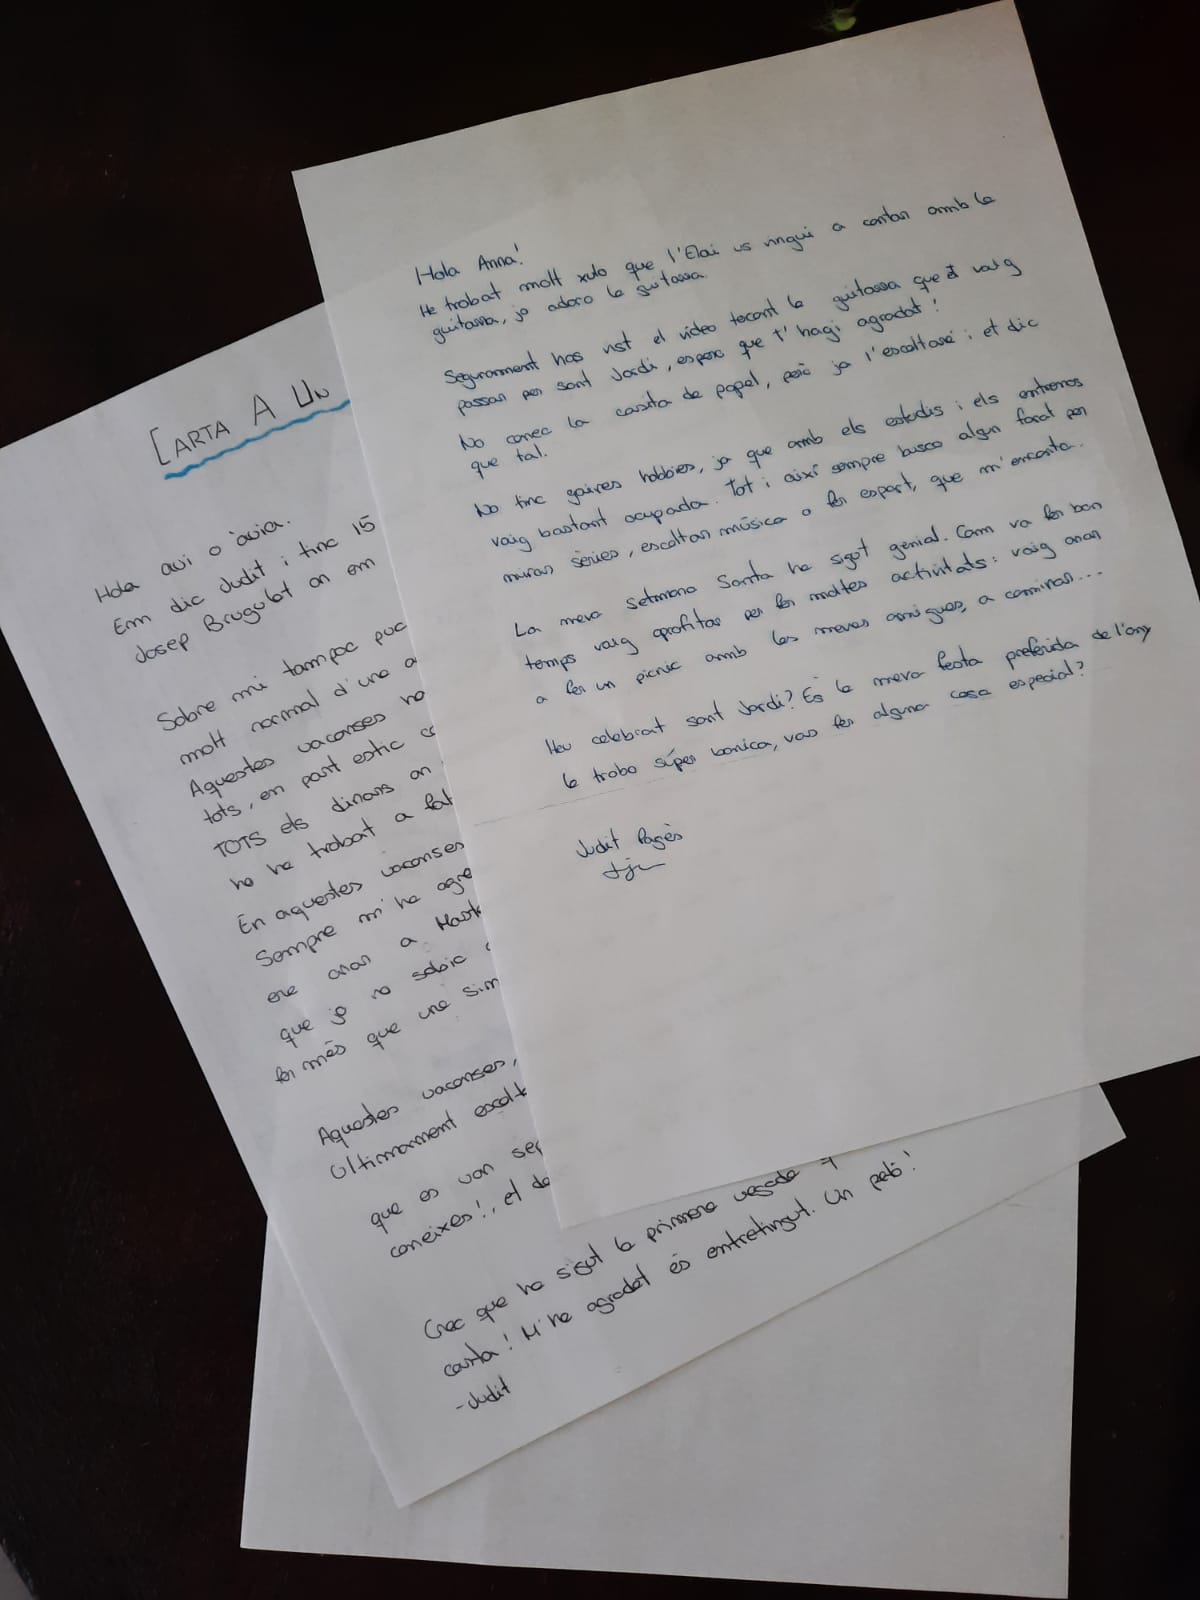 Hola Anna!
He trobat molt xulo que l'Elai us vingui a cantar amb la
guitarra, jo adoro la guitarra.
Segurament has vist el vídeo tocant la guitarra que et vaig
passar per sant Jordi, espero que t'hagi agradat!
No conec la casita de papel, però ja l'escoltaré i et dic
que tal.
No tinc gaires hobbies, ja que amb els estudis i els entrenos
vaig bastant ocupada. Tot i així sempre busco algun forat per
mirar sèries, escoltar música o fer esport, que m'encanta.
La meva Setmana Santa ha sigut genial. Com va fer bon
temps vaig aprofitar per fer moltes activitats: vaig anar
a fer un picnic amb les meves amigues, a caminar...
Heu celebrat sant Jordi? És la meva festa preferida de l'any
la trobo súper bonica, vas fer alguna cosa especial?
Judit Pagès
CARTA A UN
Hola avi o àvia.
Em dic Judit i tinc 15
Josep Brugulat on em
Sobre mi tampoc puc
molt normal d'una a
Aquestes vacanses no
tots, en part estic co
TOTS els dinars on
ho he trobat a fal
En aquestes vacanses
Sempre m'ha agra
era anar a Mast
que jo no sabia
fer més que una sim
Aquestes vacanses,
Ultimament escolt
que es van sep
coneixes!, et de
Crec que ha sigut la primera vegada
carta! M'ha agradat és entretingut. Un petó!
-Judit